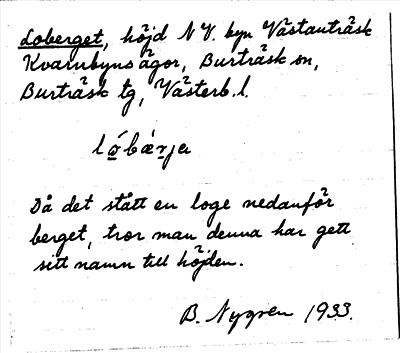 Loberget, höjd N V. byn Västanträsk
Kvarnbyns ägor, Burträsk sn,
Burträsk tg, Västerb. l.
lo̱̒bæ̀r̠ja
Då det stått en loge nedanför
berget, tror man denna har gett
sitt namn till höjden.
B. Nygren 1933.